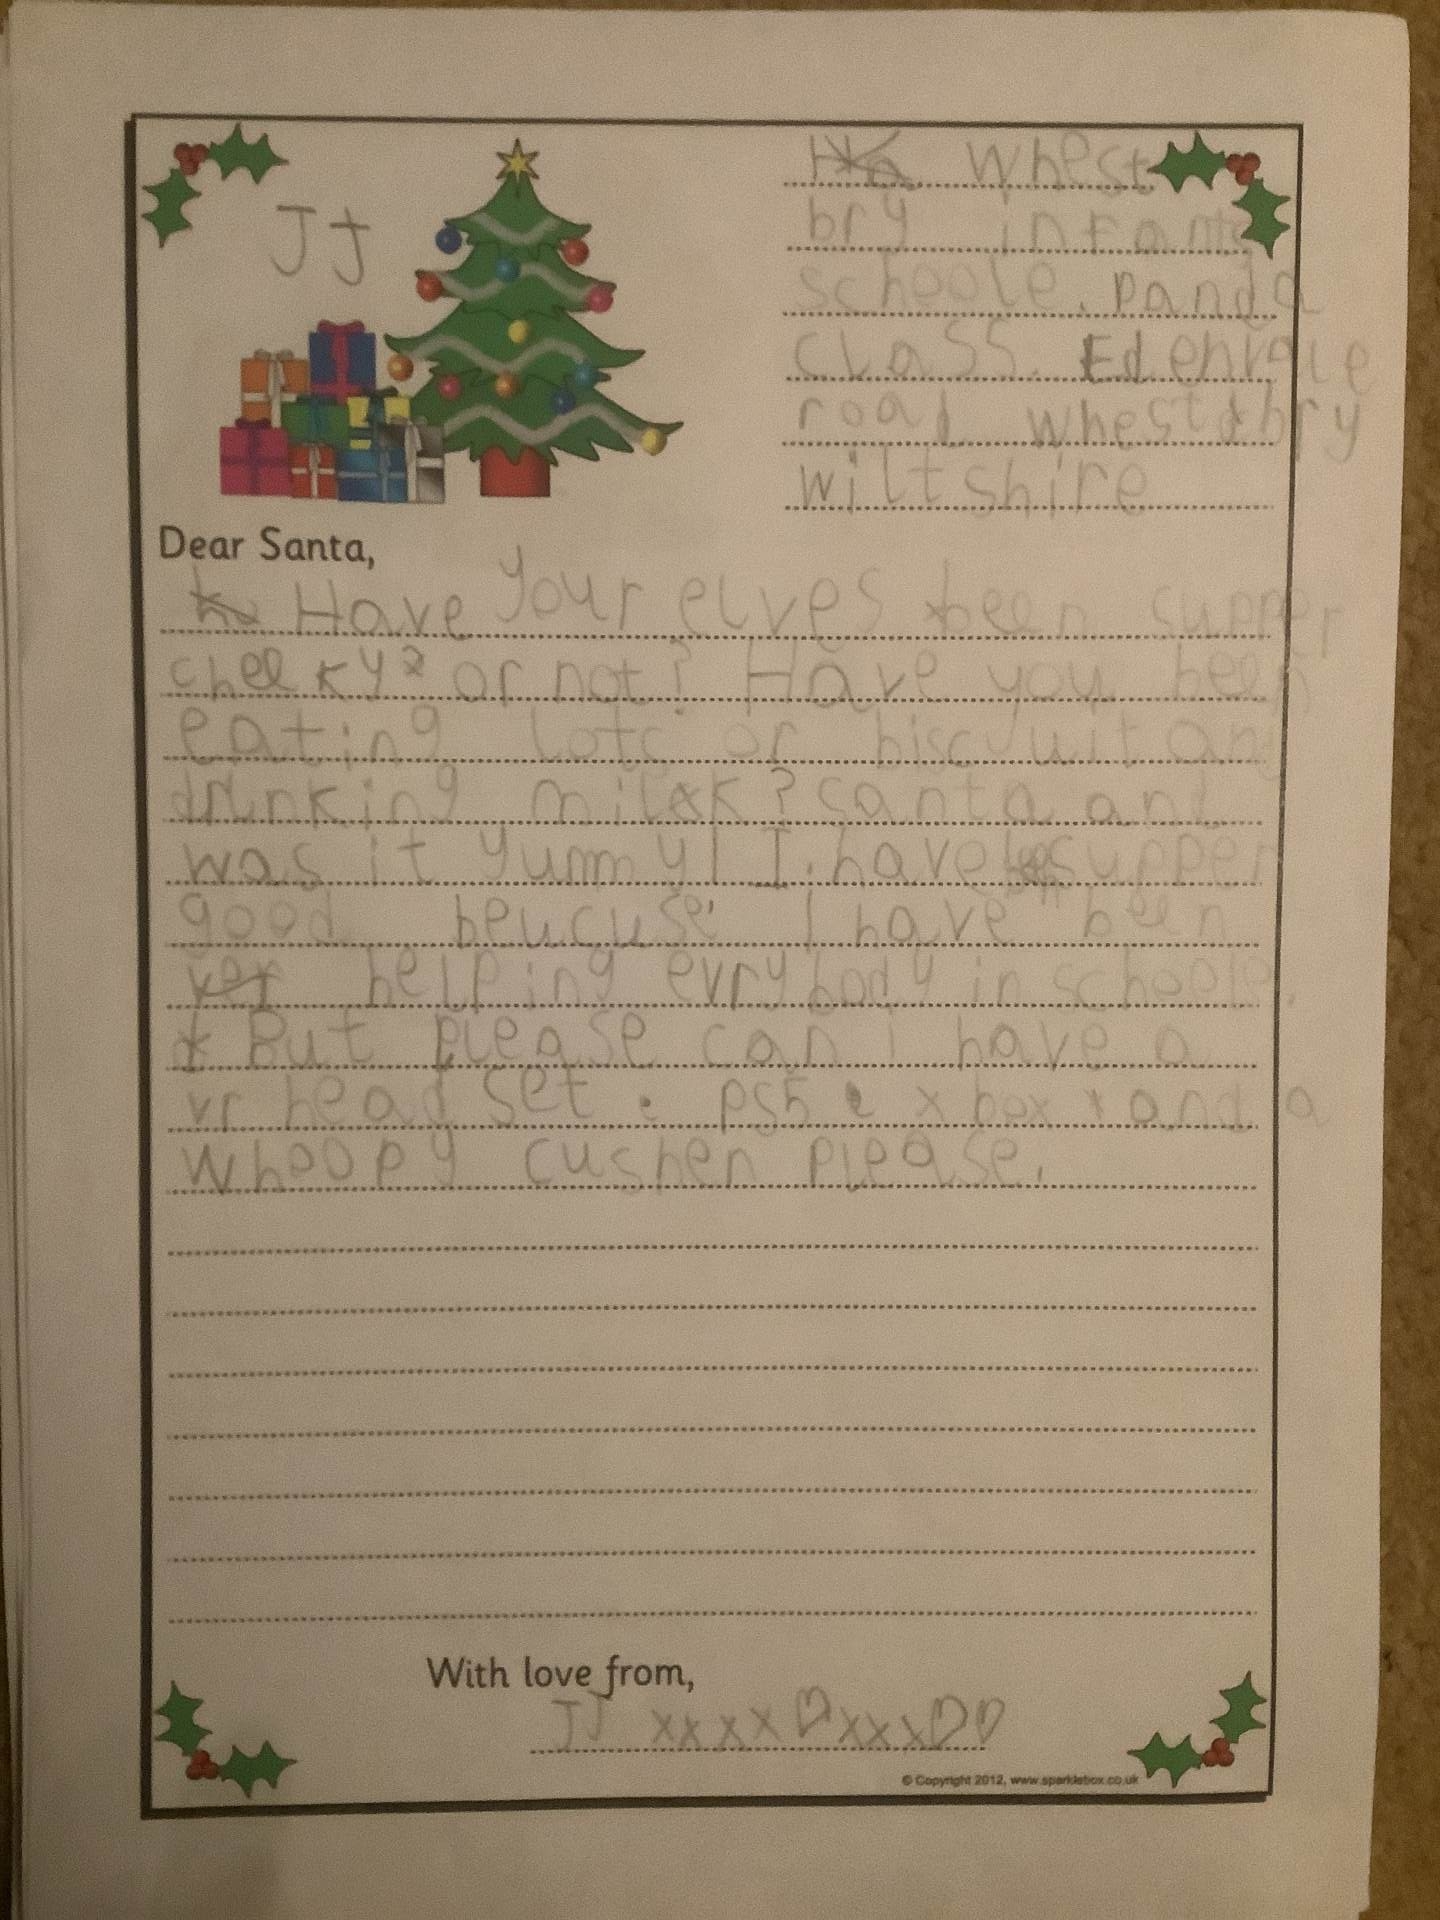 JJ
Whest
bry infants
schoole. panda
class. Edenvale
road whestbry
wiltshire
Dear Santa,
Have your elves been supper
cheeky or not? Have you been
eating lots or biscuit and
drinking milk? santa and
was it yummy! I have ben supper
good beucuse I have been
helping evrybody in schoole.
But please can i have a
vr head set. ps5. xbox and a
whoopy cushen please.
With love from,
JJ xxxx♡xxx♡♡
© Copyright 2012, www.sparklebox.co.uk